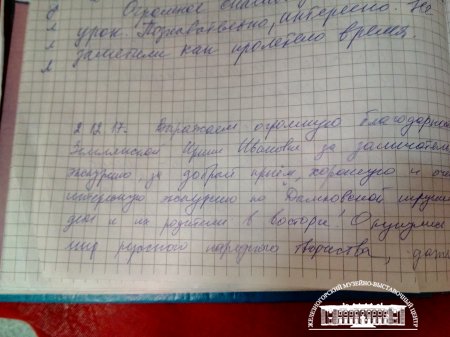 Огромное спаси
урок. Познавательно, интересно. Не
заметили как пролетело время
2.12.17. Выражаем огромную благодарно
Землянской Ирине Ивановне за замечател
экскурсию, за добрый приём, хорошую и оч
интересную экскурсию по "Дымковской игрушк
дети и мы родители в восторге! Окунулись
мир русского народного творчества, даж
ЖЕЛЕЗНОГОРСКИЙ МУЗЕЙНО-ВЫСТАВОЧНЫЙ ЦЕНТР